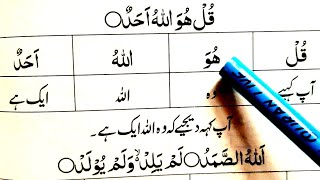 قُلْ هُوَ اللهُ اَحَدٌ ○
قُلْ هُوَ اللهُ اَحَدٌ
آپ کہیے وہ اللہ ایک ہے
آپ کہہ دیجیے کہ وہ اللہ ایک ہے۔
اَللهُ الصَّمَدُ ○ لَمْ يَلِدْ ۙ وَلَمْ يُوْلَدْ ○